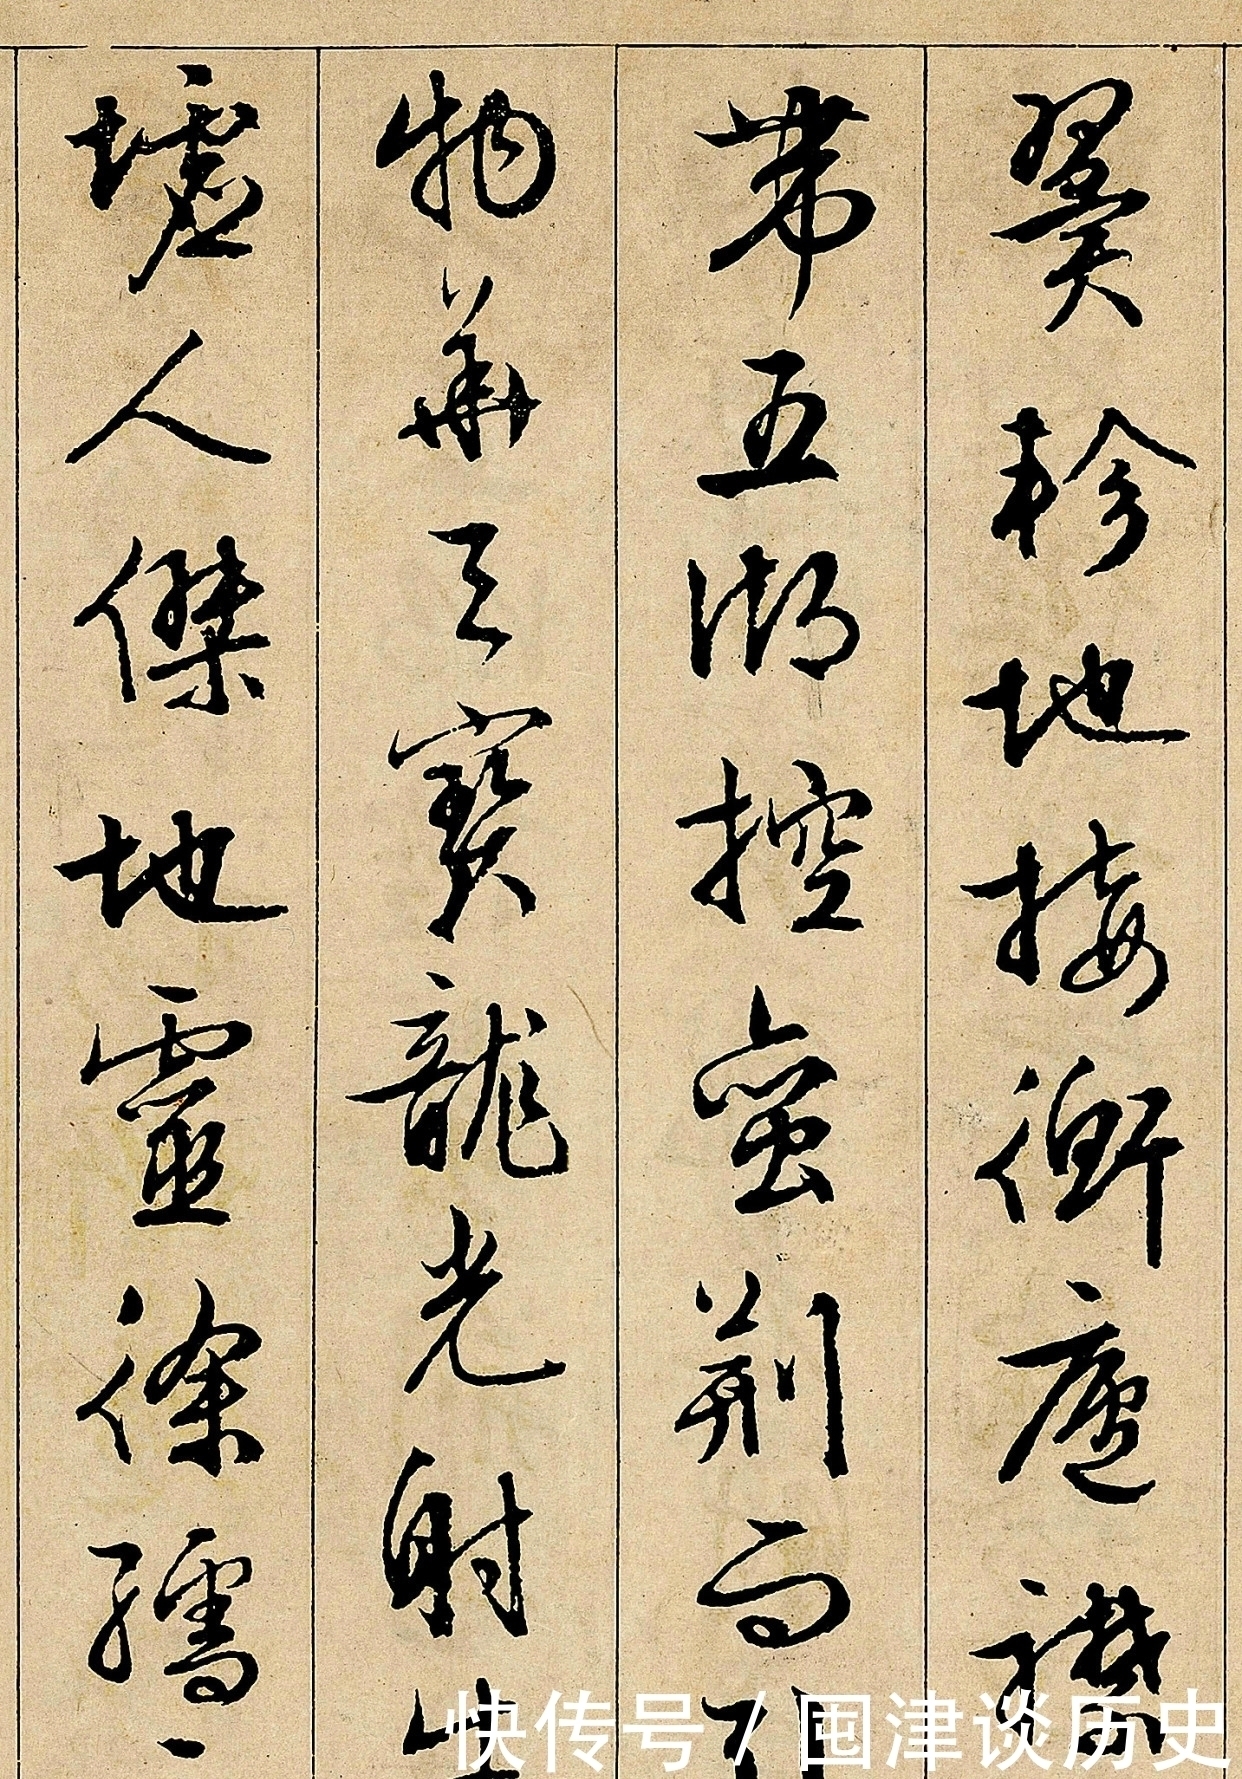 翼軫地接衡廬襟
帶五湖控蠻荊而引
物華天寶龍光射牛
墟人傑地靈徐孺下
快传号 / 国津谈历史